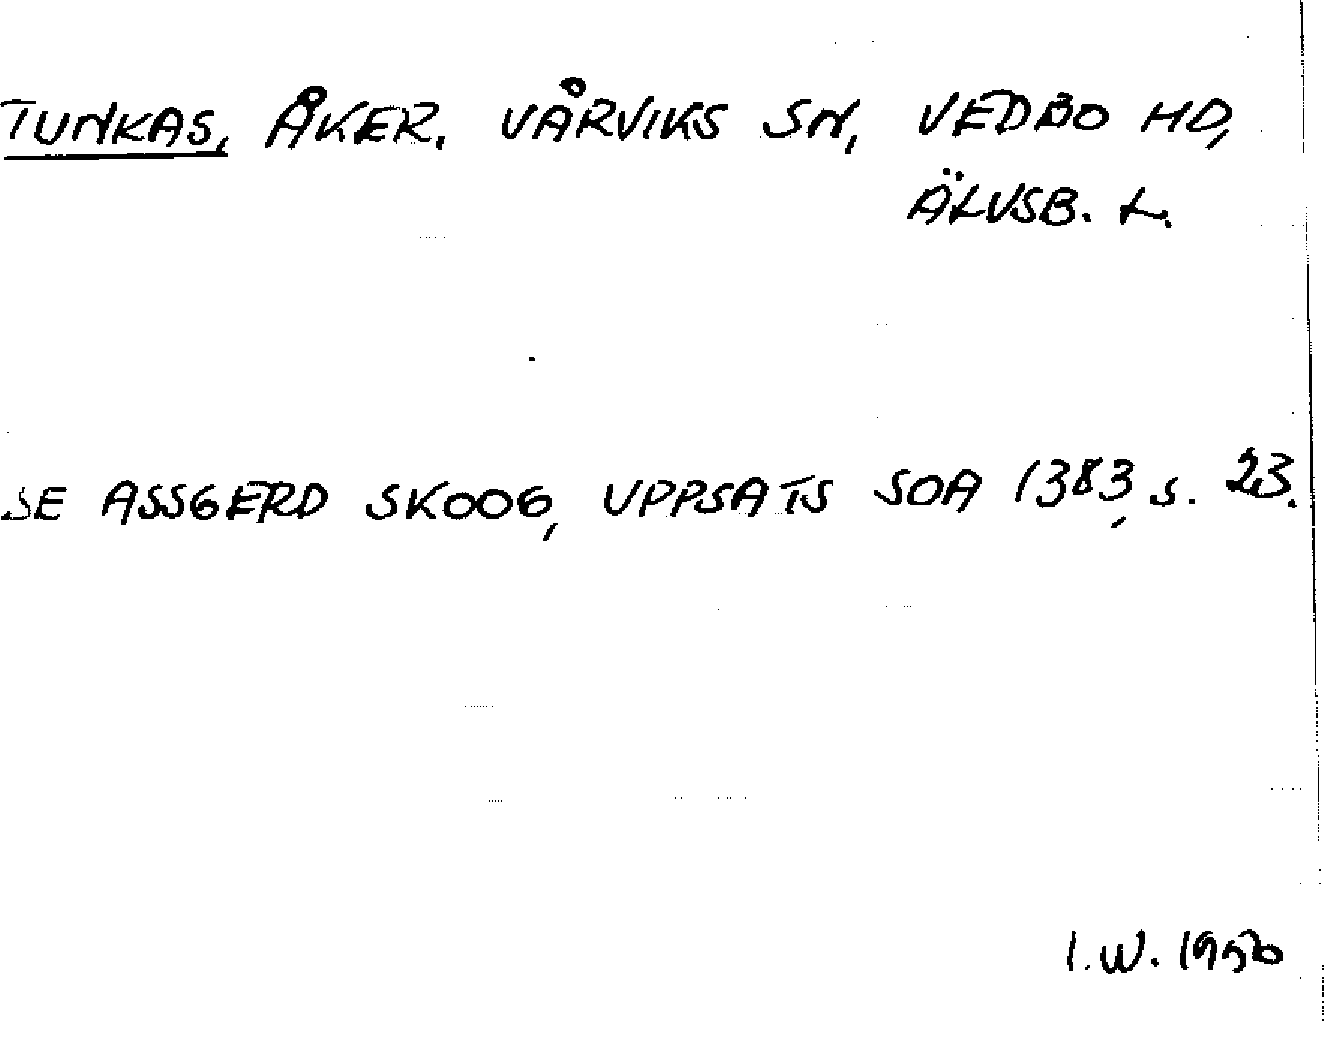 TUNKAS, ÅKER. VÅRVIKS SN, VEDBO HD,
ÄLVSB. L.
SE ASSGERD SKOOG, UPPSATS SOA 1383, s. 23.
I.W. 1950